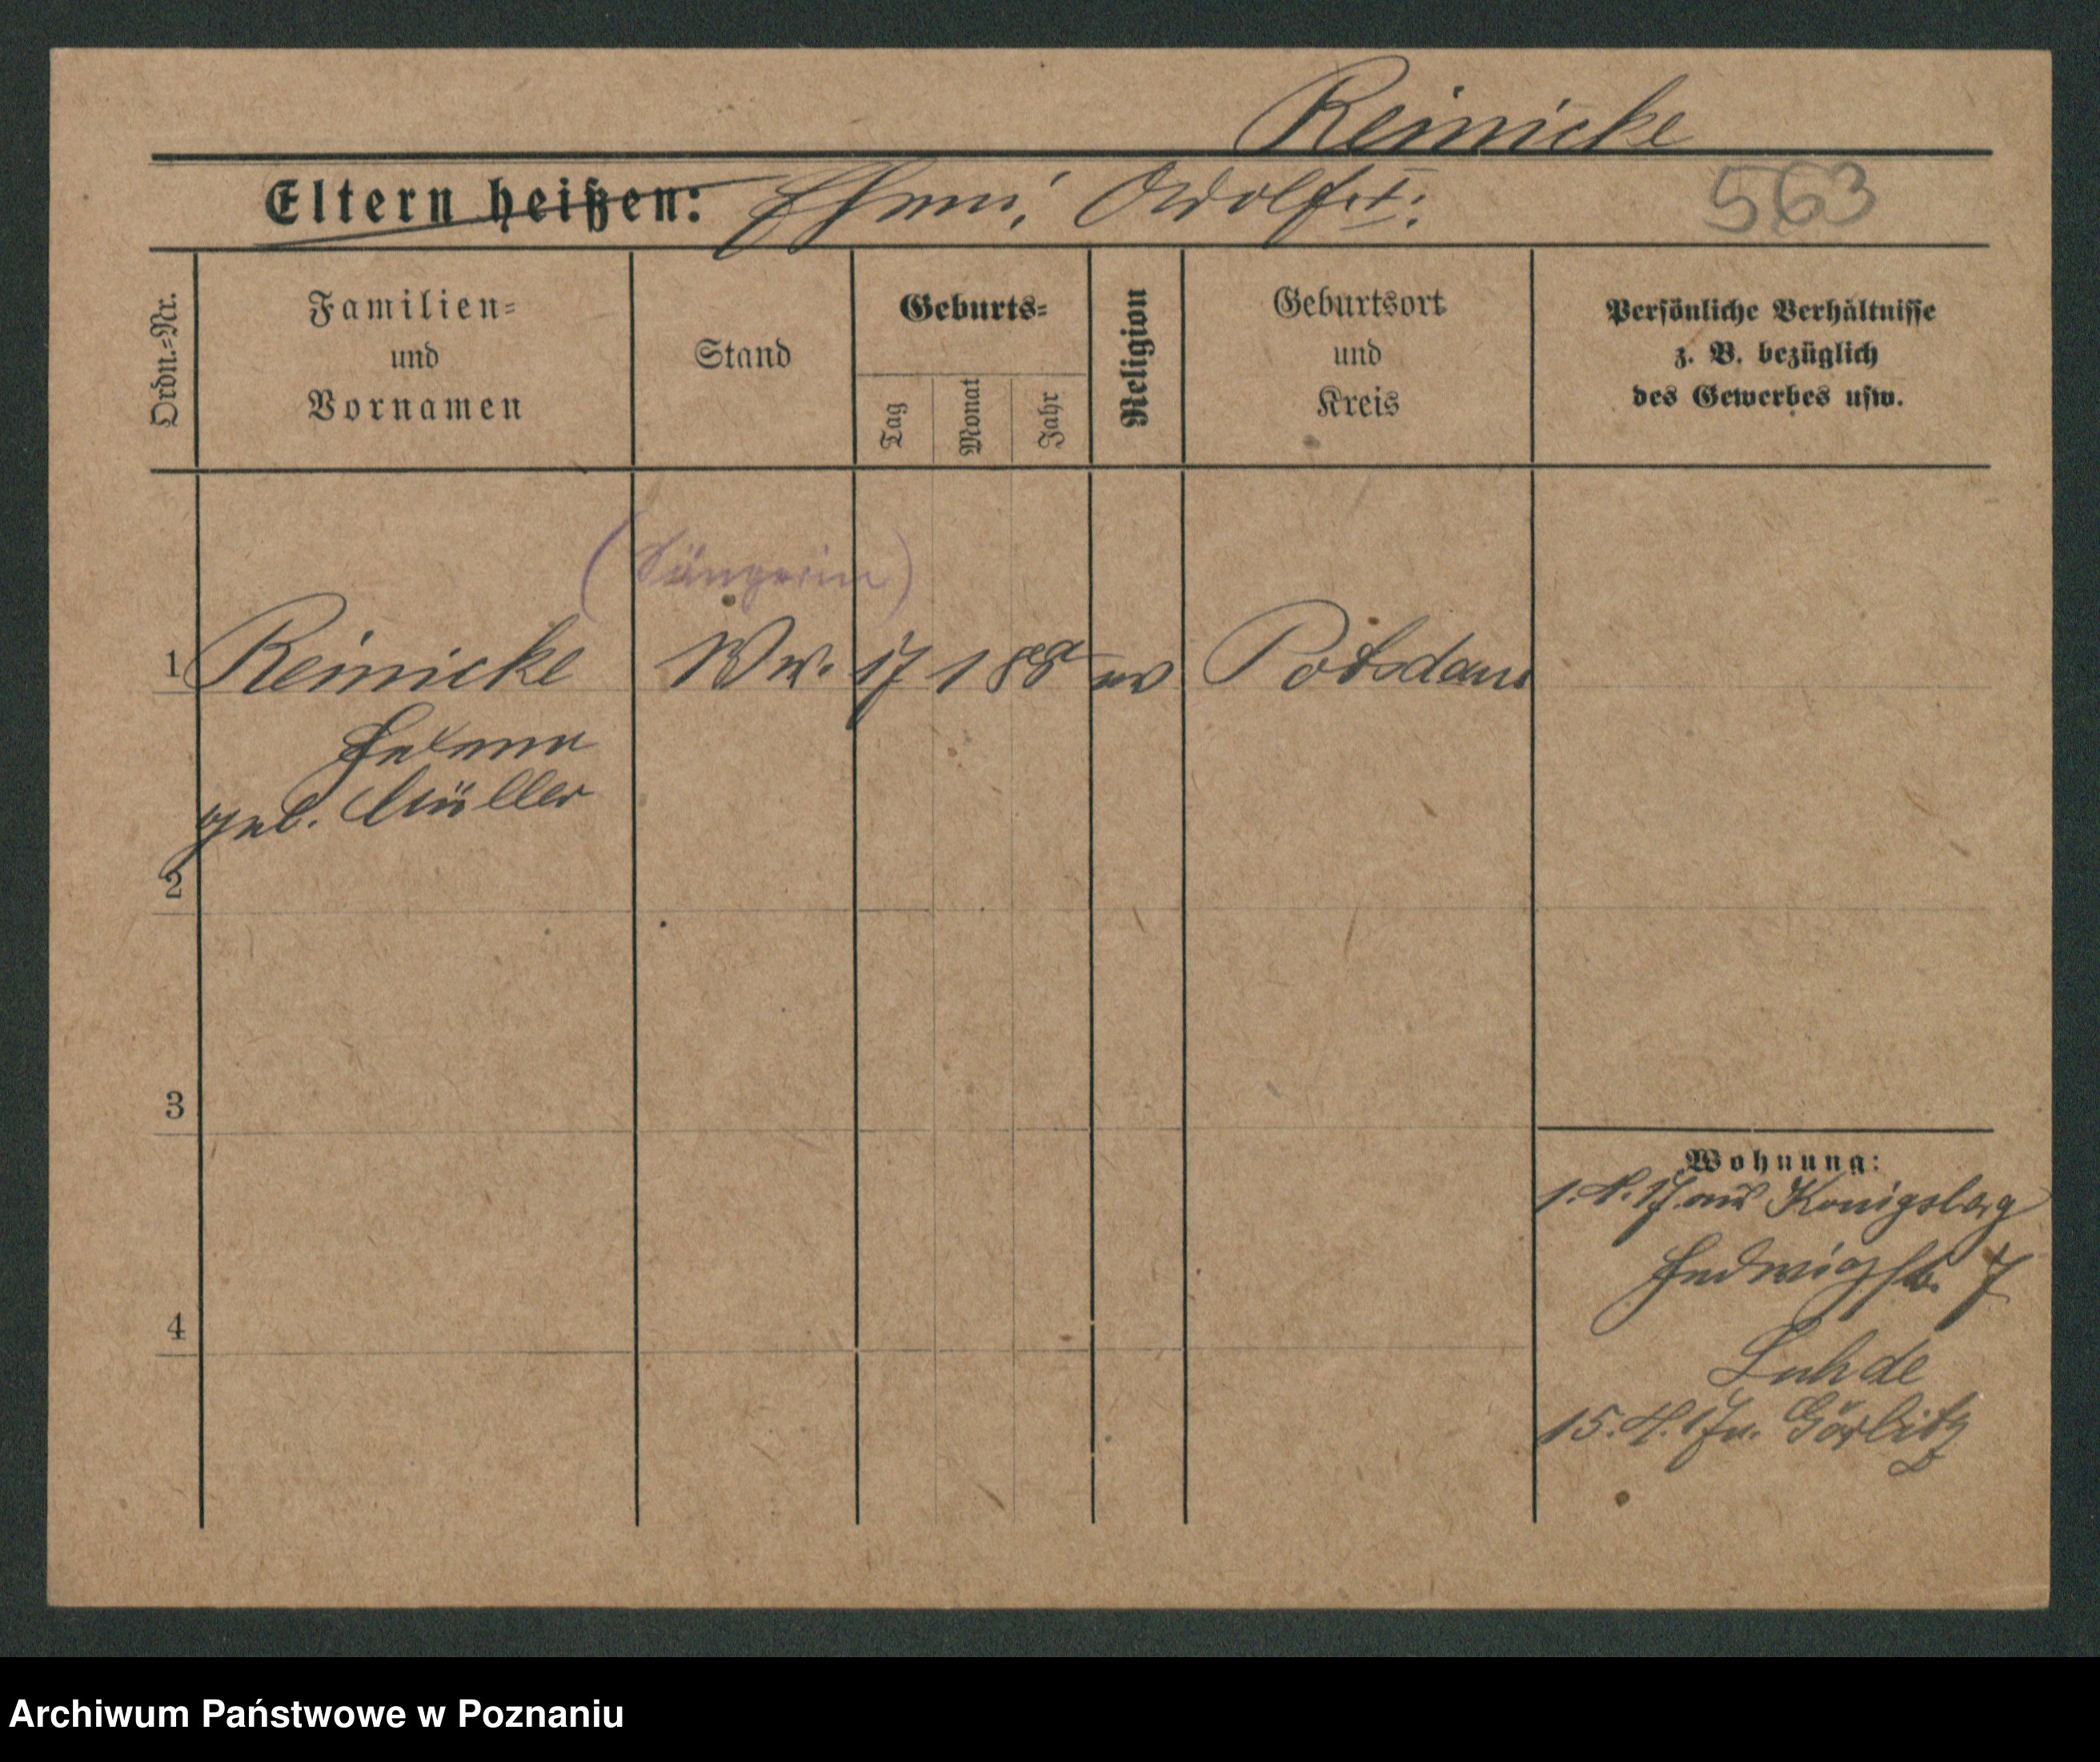 Reinicke
Eltern heißen: Ehem: Adolf †.
563
Ordn.=Nr.
Familien=
und
Vornamen
Stand
Geburts=
Tag
Monat
Jahr
Religion
Geburtsort
und
Kreis
Persönliche Verhältnisse
z. B. bezüglich
des Gewerbes usw.
(Sängerin)
1 Reinicke Ww. 17 1 88 ev Potsdam
geb. Müller
2
3
4
Wohnung:
1.4.17 aus Königsberg
Hedwigstr. 7
Luhde
15.4.17 n. Görlitz
Archiwum Państwowe w Poznaniu